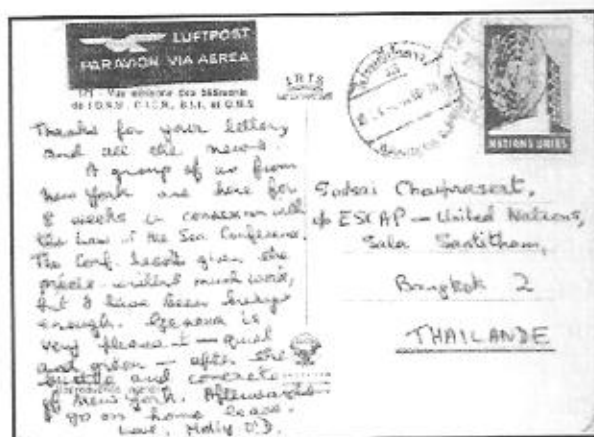 LUFTPOST
PAR AVION VIA AEREA
Vue aérienne des bâtiments
de l'O.N.U.
IRIS
NATIONS UNIES
Thanks for your letter,
and all the news.
A group of us from
New York are here for
8 weeks in connexion with
the Law of the Sea Conference.
The Conf. hasn't given the
précis-writers much work,
but I have been busy
enough. Geneva is
very pleasant — quiet
and green — after the
bustle and concrete
of New York. Afterwards
I go on home leave.
Love, Molly O'D.
c/o ESCAP — United Nations,
Sala Santitham,
Bangkok 2
THAILANDE